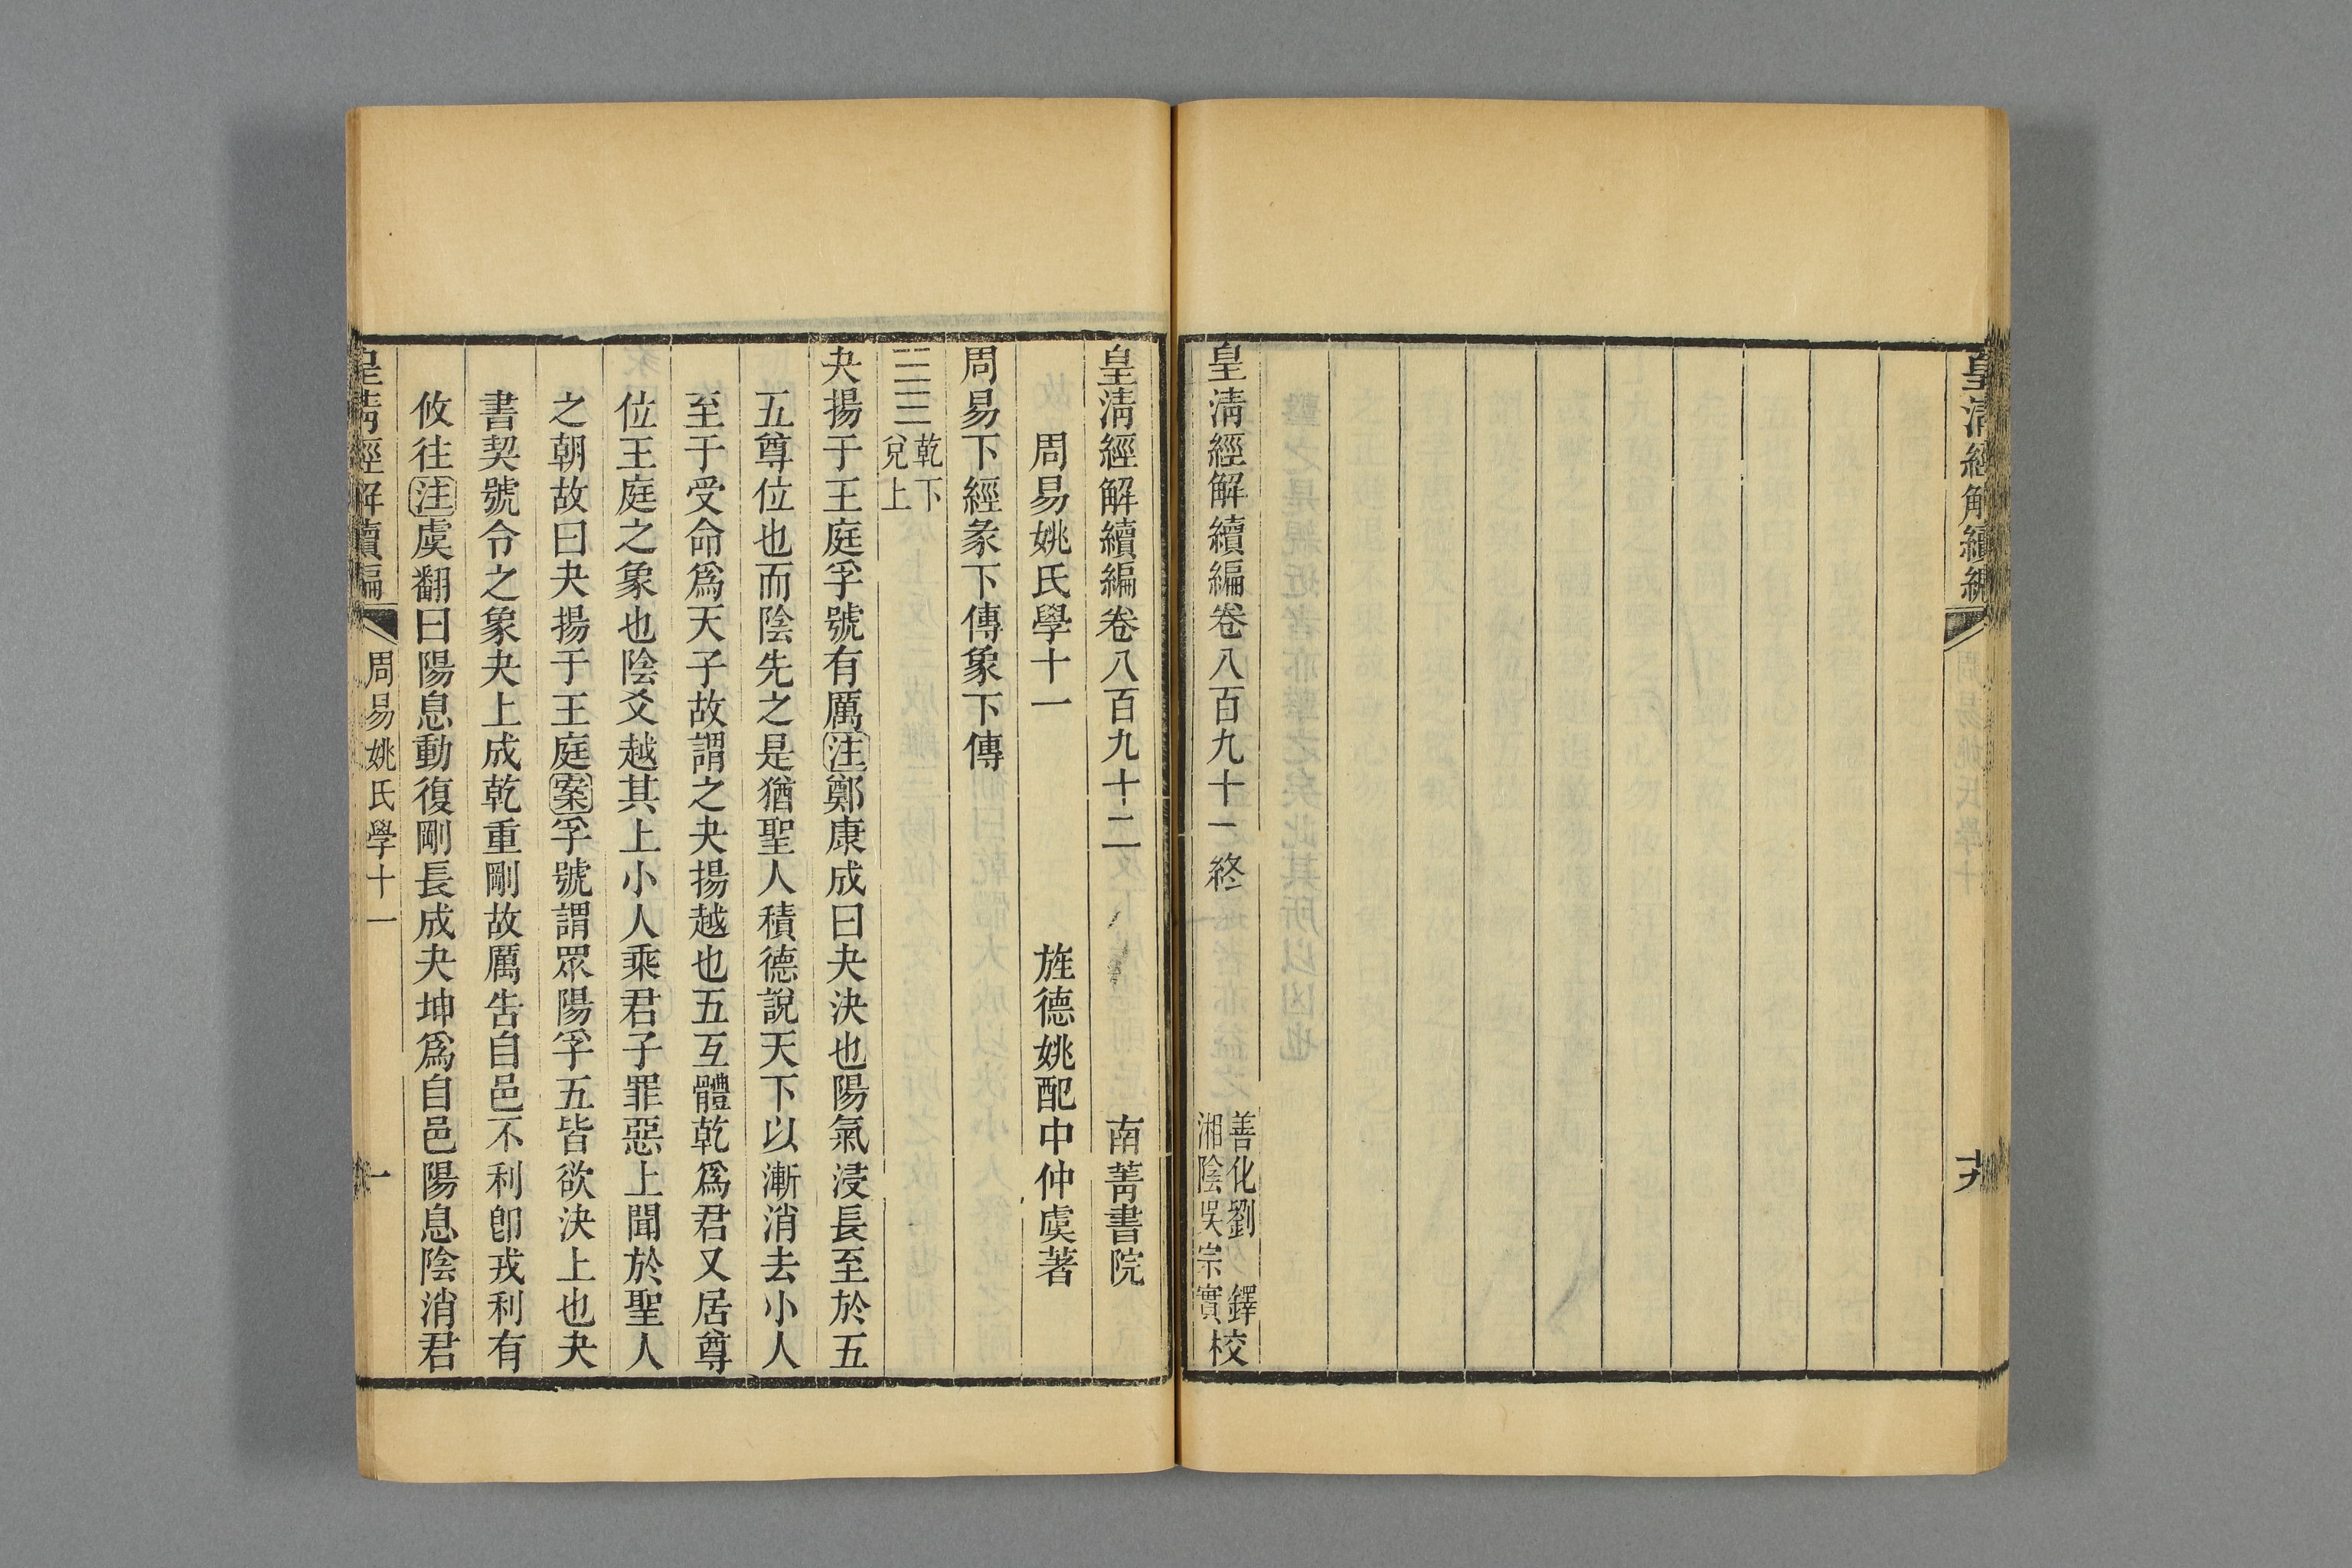 皇清經解續編
周易姚氏學十
十九
皇清經解續編卷八百九十一終
善化劉 鐸
湘陰吳宗實
校
皇清經解續編卷八百九十二
南菁書院
周易姚氏學十一
旌德姚配中仲虞著
周易下經彖下傳象下傳
乾下
兌上
夬揚于王庭孚號有厲注鄭康成曰夬決也陽氣浸長至於五
五尊位也而陰先之是猶聖人積德說天下以漸消去小人
至于受命爲天子故謂之夬揚越也五互體乾爲君又居尊
位王庭之象也陰爻越其上小人乘君子罪惡上聞於聖人
之朝故曰夬揚于王庭案孚號謂眾陽孚五皆欲決上也夬
書契號令之象夬上成乾重剛故厲告自邑不利卽戎利有
攸往注虞翻曰陽息動復剛長成夬坤爲自邑陽息陰消君
皇清經解續編
周易姚氏學十一
一